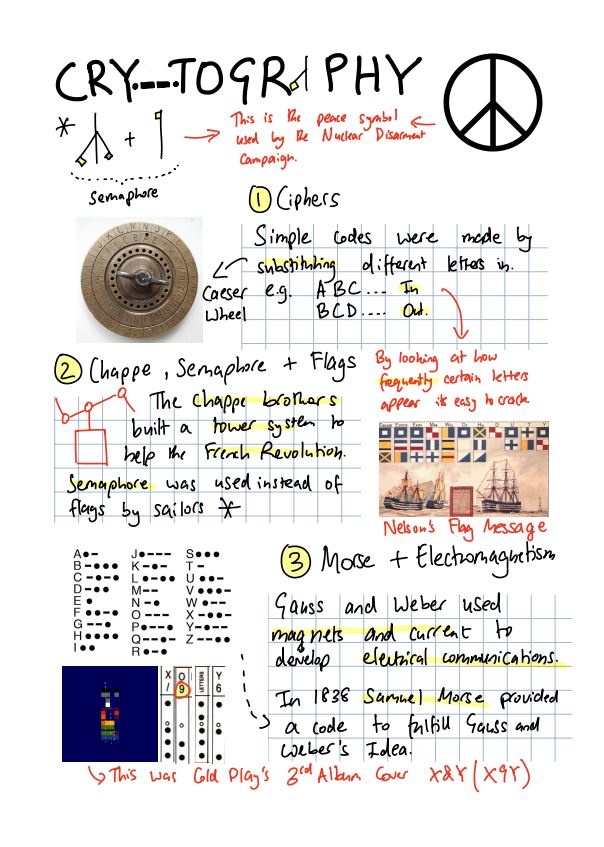 CRY·--·TOGR PHY
* + 
This is the peace symbol
used by the Nuclear Disarment
Campaign.
Semaphore
1 Ciphers
Simple codes were made by
substituting different letters in.
Caeser
Wheel
e.g. ABC.... In
BCD.... Out.
By looking at how
frequently certain letters
appear is easy to crack
2 Chappe, Semaphore + Flags
The Chappe brothers
built a tower system to
help the French Revolution.
Semaphore was used instead of
flags by sailors *
Nelson's Flag Message
A●–
B–●●●
C–●–●
D–●●
E●
F●●–●
G––●
H●●●●
I●●
J●–––
K–●–
L●–●●
M––
N–●
O–––
P●––●
Q––●–
R●–●
S●●●
T–
U●●–
V●●●–
W●––
X–●●–
Y–●––
Z––●●
3 Morse + Electromagnetism
Gauss and Weber used
magnets and current to
develop electrical communications.
In 1838 Samuel Morse provided
a code to fulfill Gauss and
Weber's Idea.
X / O 9 LETTERS Y 6
This was Cold Play's 3rd Album Cover X&Y (X9Y)